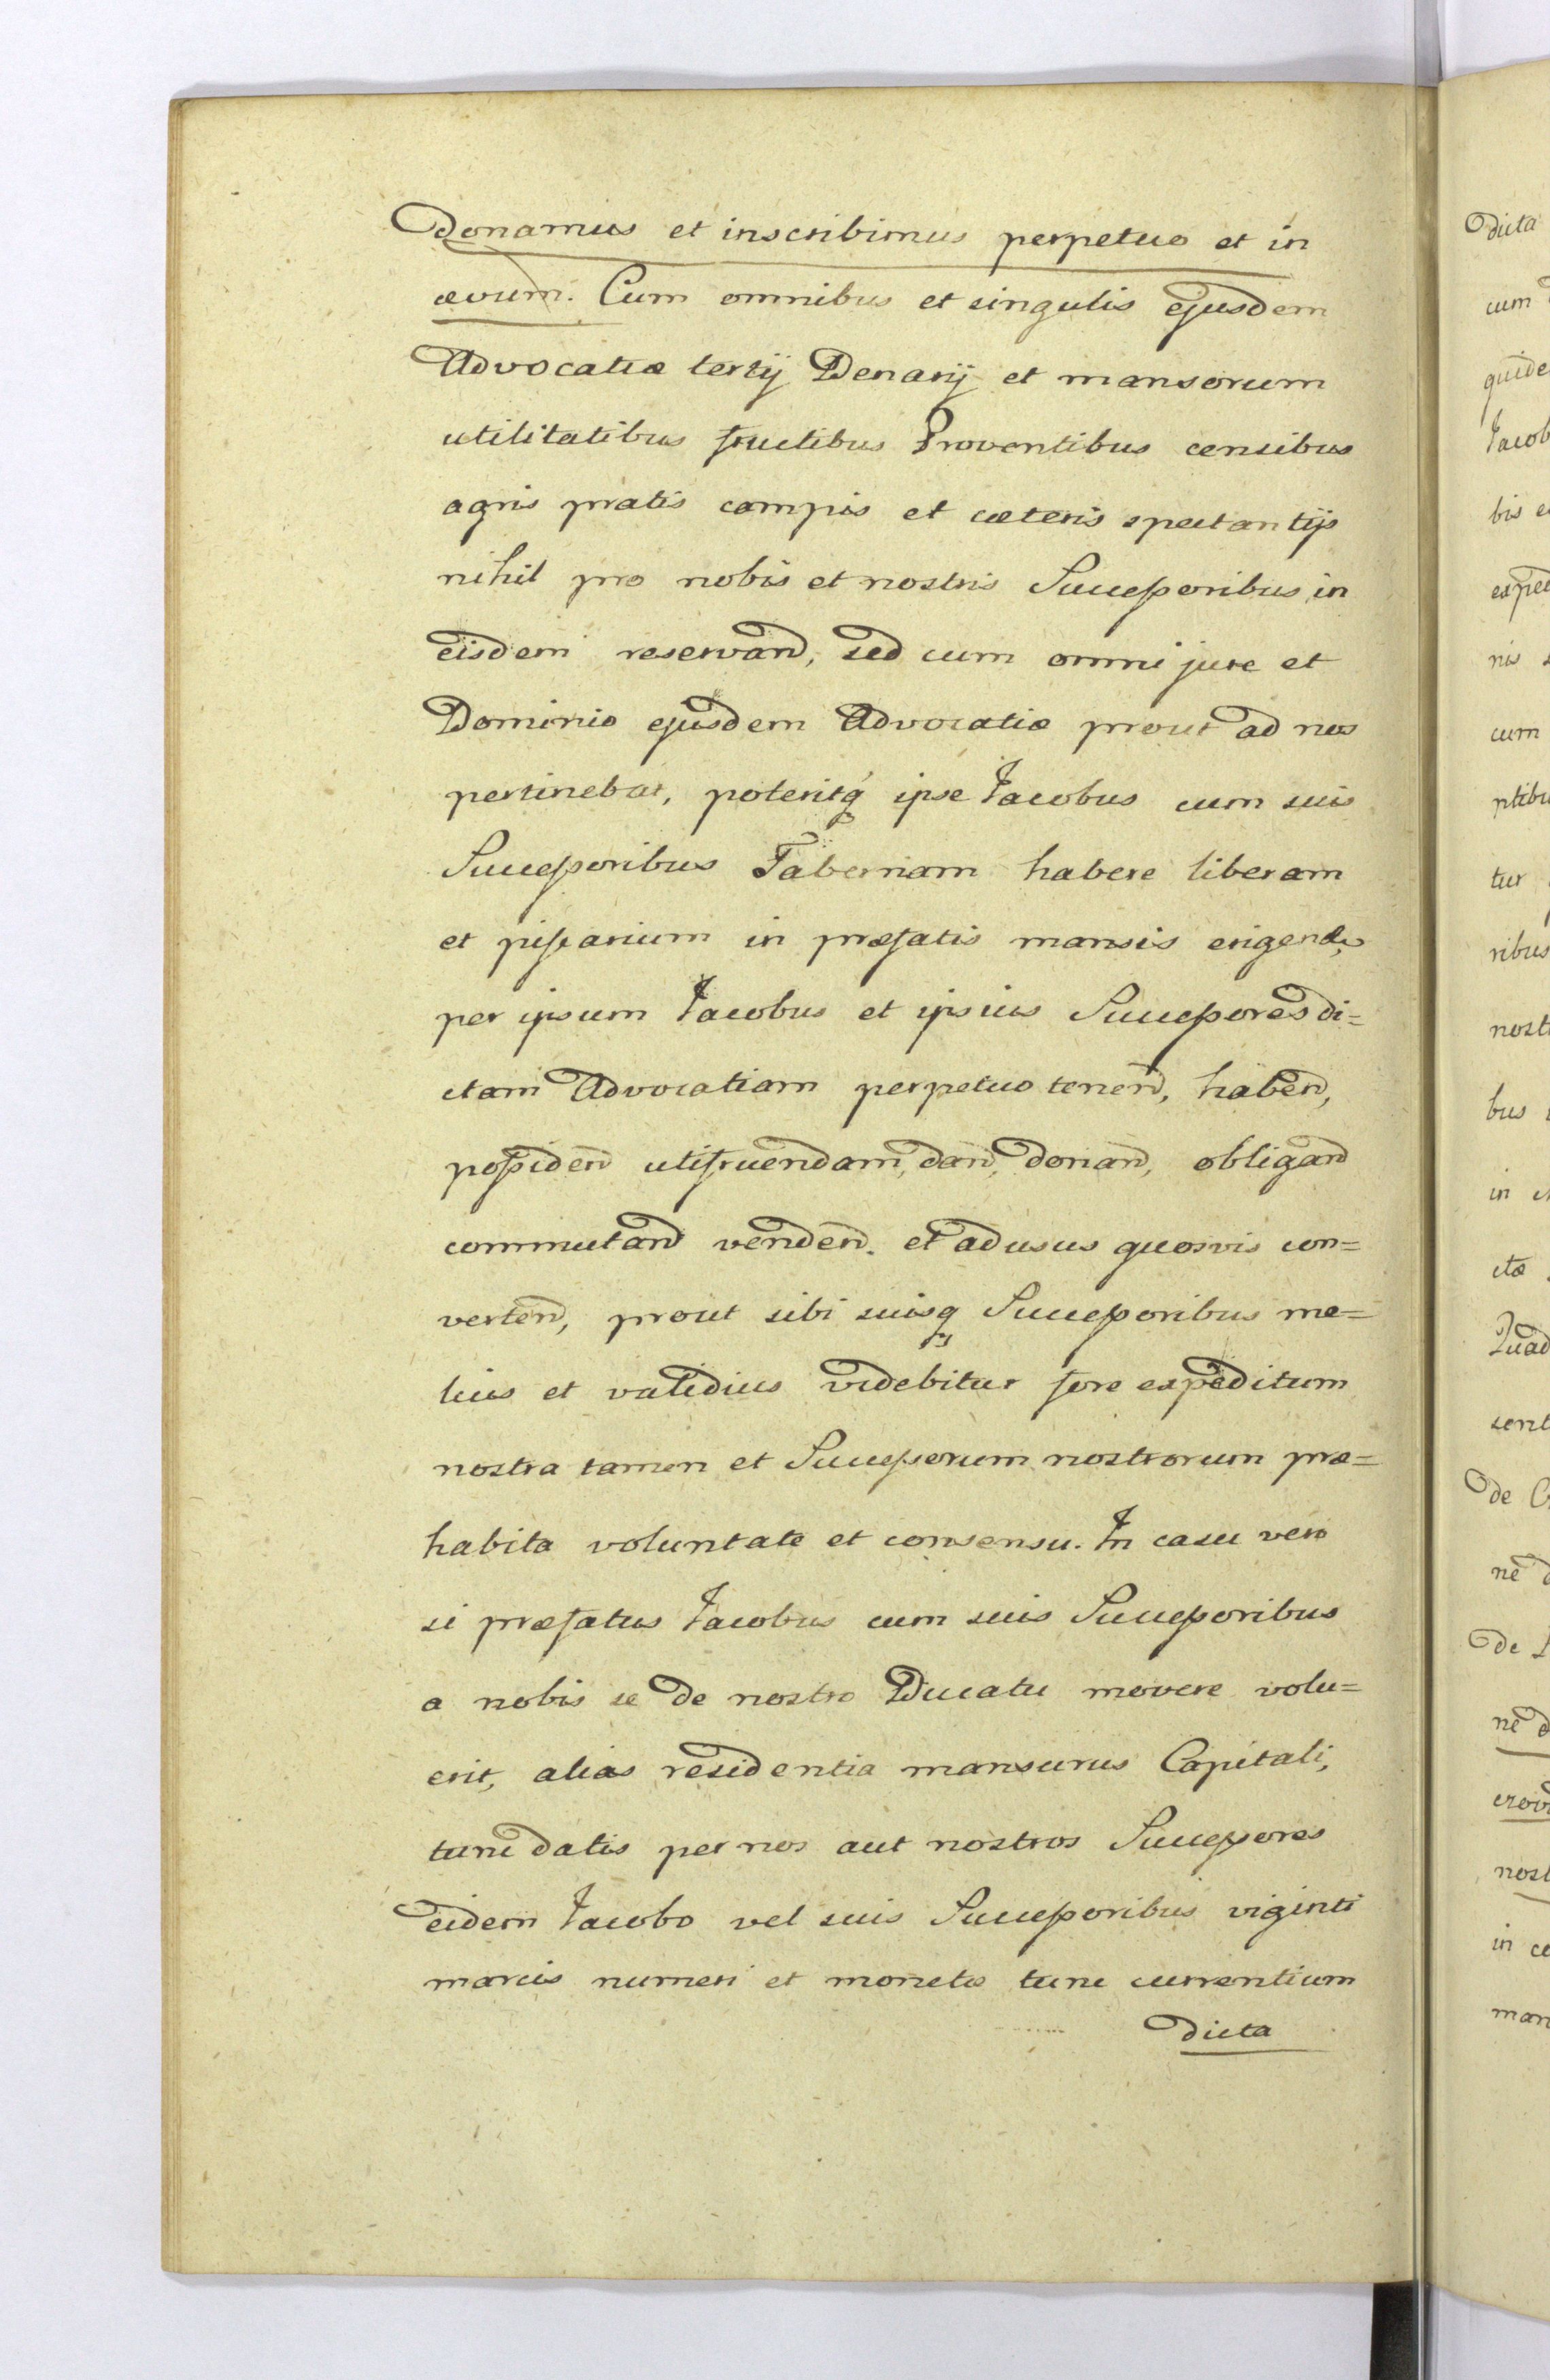 Donamus et inscribimus perpetuo et in
ævum. Cum omnibus et singulis ejusdem
Advocatiæ tertij Denarij et mansorum
utilitatibus fructibus Proventibus censibus
agris pratis campis et cæteris spectantijs
nihil pro nobis et nostris Successoribus in
eisdem reservand, sed cum omni jure et
Dominio ejusdem Advocatiæ prout ad nos
pertinebat, poteritq ipse Jacobus cum suis
Successoribus Tabernam habere liberam
et in præfatis mansis
per ipsum Jacobus et ipsius Successores di=
ctam Advocatiam perpetuo tenend, habend,
possidend utifruendam, dand, donand, obligand
commutand vendend. et ad usus quosvis con=
vertend, prout sibi suisq Successoribus me=
lius et validius videbitur fore expeditum
nostra tamen et Successorum nostrorum præ=
habita voluntate et consensu. In casu vero
si præfatus Jacobus cum suis Successoribus
a nobis se de nostro Ducatu movere volu=
erit, alias residentia mansurus Capitali,
tunc datis per nos aut nostros Successores
eidem Jacobo vel suis Successoribus viginti
marcis numeri et monetæ tunc currentium
dicta
dicta
cum
quide
Jacob
bis
expe
nis
cum
ptibu
tur
ribus
nost
bus
in
ctæ
Quad
sent
de
ne
de
ne
nost
in
man